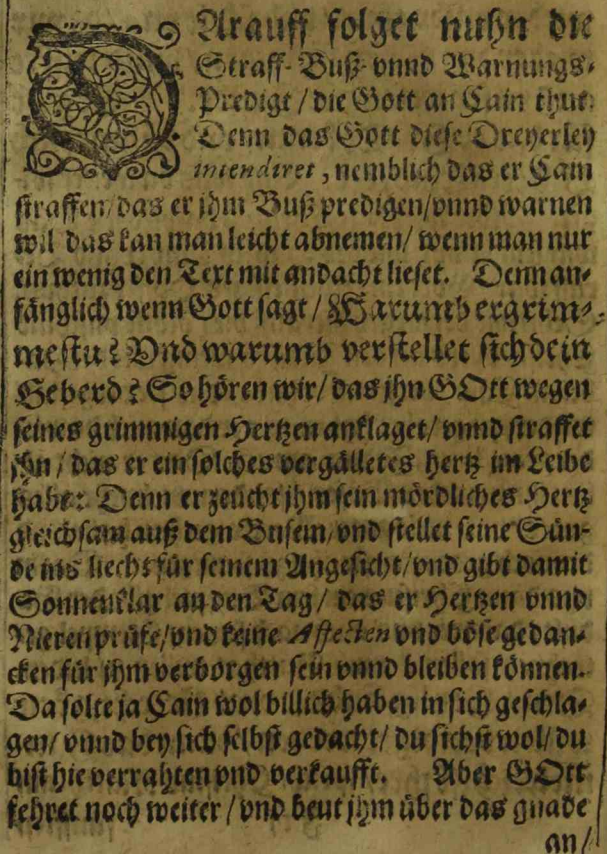 DArauff folget nuhn die
Straff- Buß- vnnd Warnungs-
Predigt / die Gott an Cain thut.
Denn das Gott diese Dreyerley
intendiret, nemblich das er Cain
straffen / das er jhm Buß predigen / vnnd warnen
wil das kan man leicht abnemen / wenn man nur
ein wenig den Text mit andacht lieset. Denn an-
fänglich wenn Gott sagt / Warumb ergrim-
mestu? Vnd warumb verstellet sich dein
Geberd? So hören wir / das jhn GOtt wegen
seines grimmigen Hertzen anklaget / vnnd straffet
jhn / das er ein solches vergälletes hertz im Leibe
habe: Denn er zeucht jhm sein mördliches Hertz
gleichsam auß dem Busem / vnd stellet seine Sün-
de ins liecht für seinem Angesicht / vnd gibt damit
Sonnenklar an den Tag / das er Hertzen vnnd
Nieren prüfe / vnd keine Affecten vnd böse gedan-
cken für jhm verborgen sein vnnd bleiben können.
Da solte ja Cain wol billich haben in sich geschla-
gen / vnnd bey sich selbst gedacht / du sichst wol / du
bist hie verrahten vnd verkaufft. Aber GOtt
fehret noch weiter / vnd beut jhm über das gnade
an /